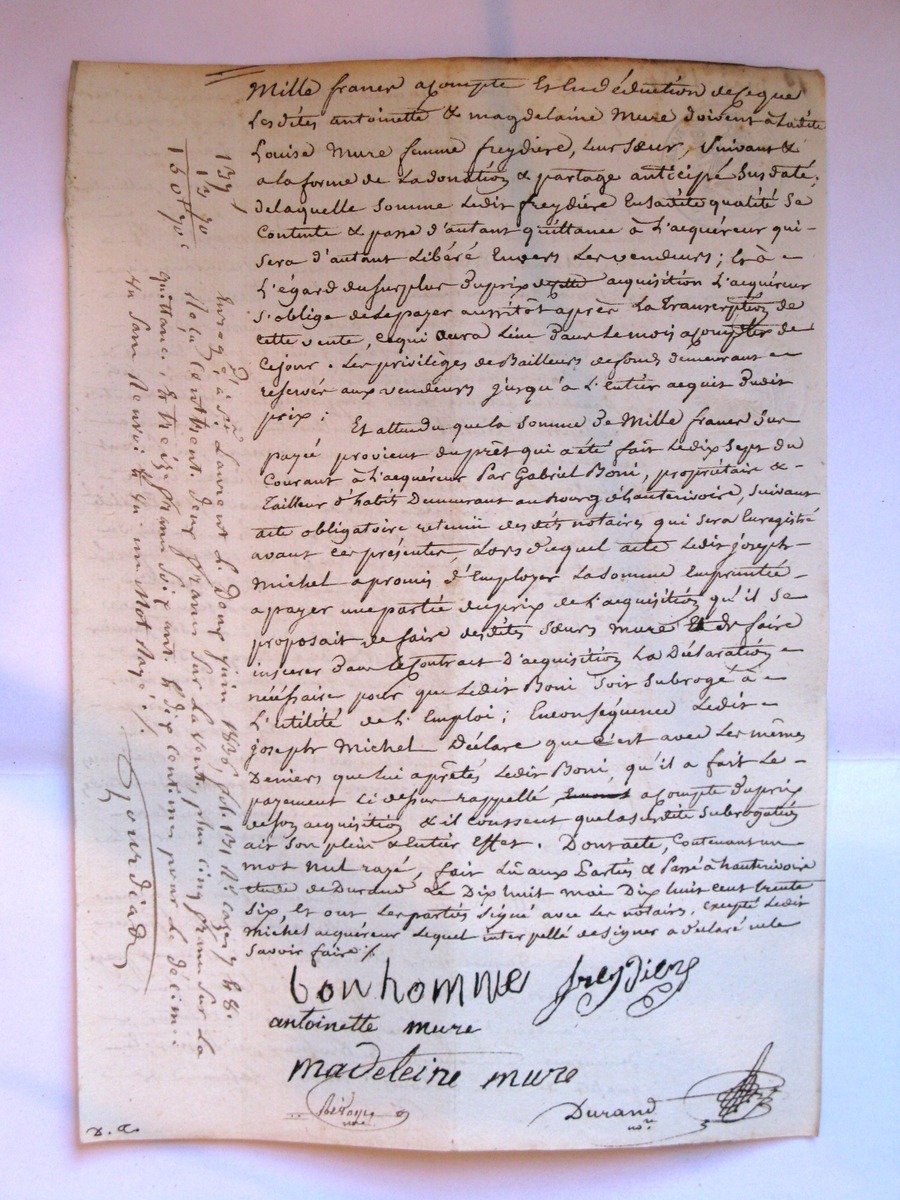 Mille francs acompte Et En déduction de ce que
Lesdites antoinette & magdelaine Mure doivent à Ladite
Louise Mure femme freydiere, leur Sœur, Suivant &
a la forme de La donation & partage anticipé Susdaté;
de laquelle Somme Ledit freydiere En Sadite qualité Se
Contente & passe d'autant quittance à L'acquéreur qui
Sera d'autant Libéré Envers Les vendeurs; Et à
L'égard du Surplus du prix de cette acquisition L'acquéreur
S'oblige de le payer aussitôt après La transcription de
cette vente, ce qui aura Lieu Dans Le mois a compter de
Ce jour. Les privilèges de Bailleurs de fonds demeurant
reservés aux vendeurs jusqu'à L'Entier acquit Dudit
prix;
Et attendu que la Somme De Mille francs Sus
payée provient du prêt qui a été fait Le dix Sept du
Courant à L'acquéreur Par Gabriel Boni, propriétaire &
Tailleur d'habits Demeurant au bourg d'hauterivoire, Suivant
acte obligatoire retenu desdits notaires qui Sera Enregistré
avant Ces présentes, Lors Duquel acte Ledit joseph
Michel a promis d'Employer La Somme Empruntée
a payer une partie du prix de L'acquisition qu'il Se
proposait de faire desdites Sœurs Mure Et de faire
inserer dans le Contrat D'acquisition La Déclaration
nécéssaire pour que Ledit Boni Soit Subrogé à
L'utilité de L'Emploi; En conséquence Ledit
joseph Michel Déclare que C'est avec Les mêmes
Deniers que Lui a prêtés Ledit Boni, qu'il a fait Le
payement Ci dessus rappellé, a compte du prix
de Son acquisition & il consent que la Susdite Subrogation
ait Son plein & Entier Effet. Dont acte, Contenant un
mot Nul rayé, fait Lû aux Parties & Passé à hauterivoire
étude de Durand Le Dix huit mai Dix huit cent trente
Six, Et ont Les parties Signé avec Les notaires, Excepté Ledit
Michel acquéreur Lequel interpellé de Signer a déclaré ne le
Savoir faire ./.
bonhomme freydiere
antoinette mure
madeleine mure
Durand
nore
137
13 70
150f 70c
Enregé à St Laurent Le Douze juin 1836, fol. 131 Ro. Cazes 7 & 8.
Reçu Cent trent Deux francs Sur La vente, plus Cinq francs Sur La
quittance, & treize francs Soixante & dix centimes pour Le décime